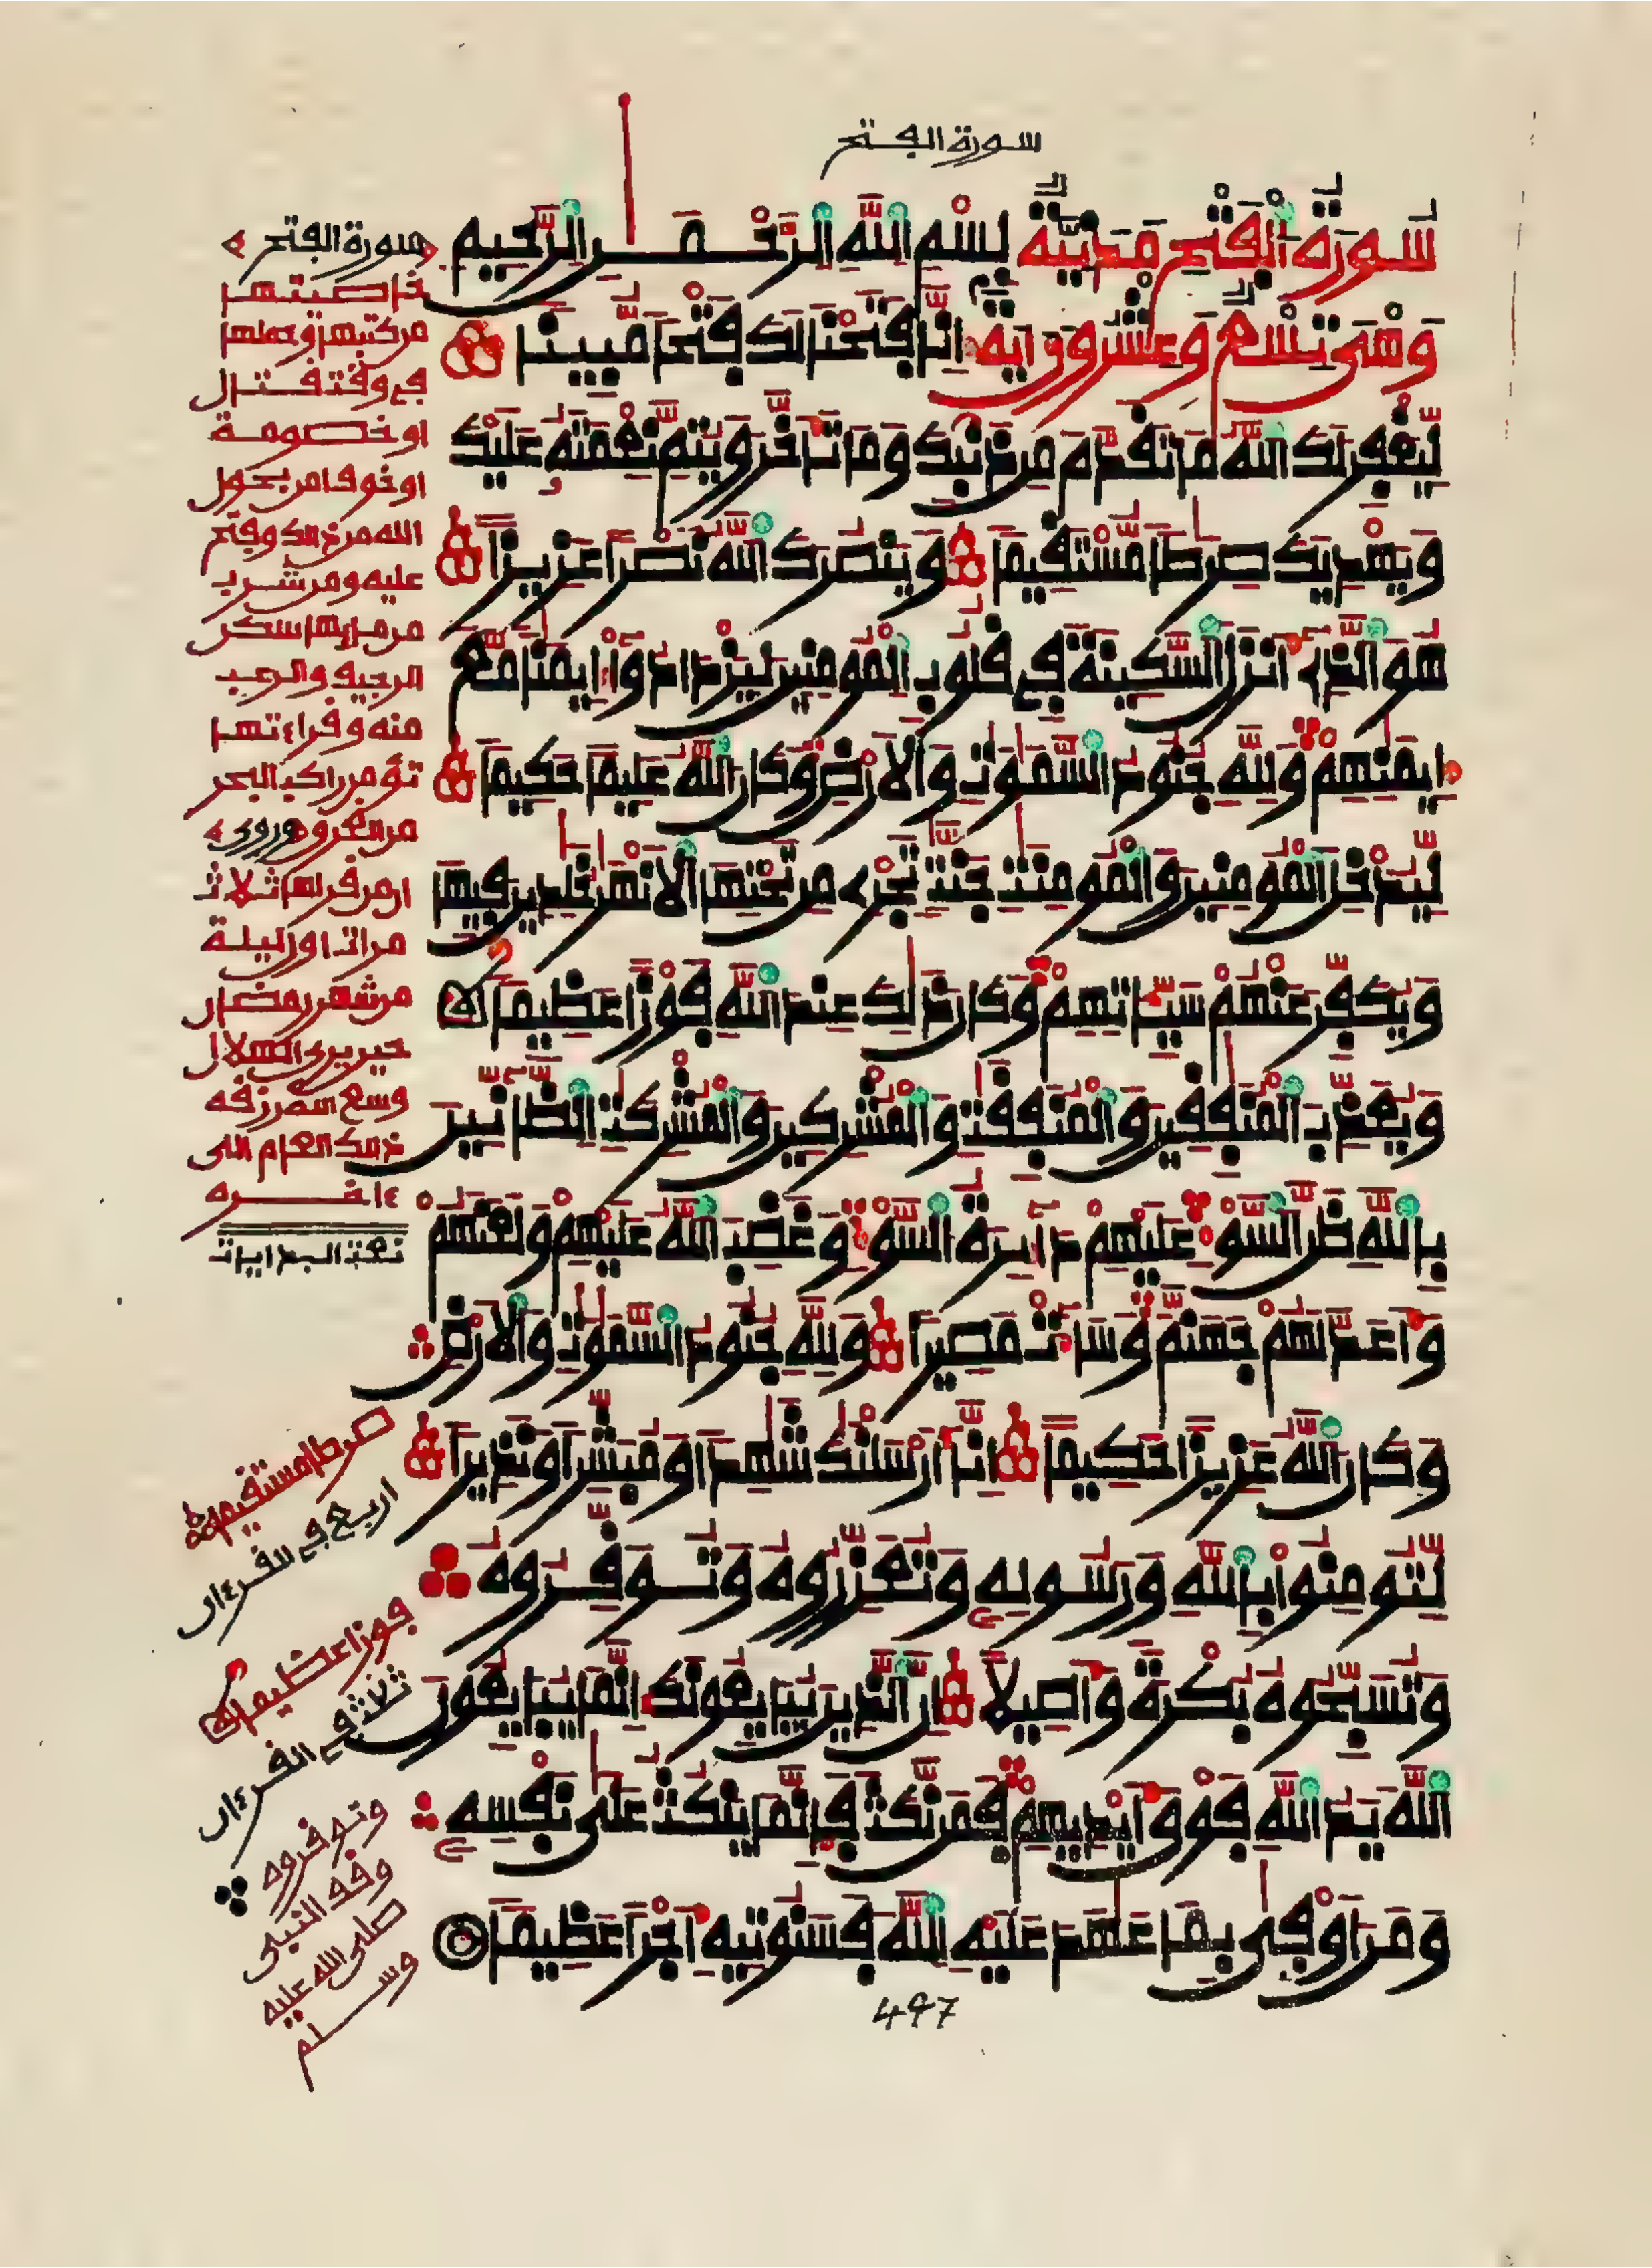 سورة الفتح
سُورَةُ الْفَتْحِ مَدَنِيَّةٌ بِسْمِ اللَّهِ الرَّحْمَٰنِ الرَّحِيمِ
وَهْىَ تِسْعٌ وَعِشْرُونَ ايَةً اِنَّا فَتَحْنَا لَكَ فَتْحًا مُّبِينًا
لِّيَغْفِرَ لَكَ اللَّهُ مَا تَقَدَّمَ مِن ذَنۢبِكَ وَمَا تَأَخَّرَ وَيُتِمَّ نِعْمَتَهُۥ عَلَيْكَ
وَيَهْدِيَكَ صِرَٰطًا مُّسْتَقِيمًا وَيَنصُرَكَ اللَّهُ نَصْرًا عَزِيزًا
هُوَ الَّذِے أَنزَلَ السَّكِينَةَ فِے قُلُوبِ الْمُومِنِينَ لِيَزْدَادُوٓاْ إِيمَٰنًا مَّعَ
إِيمَٰنِهِمْ وَلِلَّهِ جُنُودُ السَّمَٰوَٰتِ وَالَارْضِ وَكَانَ اللَّهُ عَلِيمًا حَكِيمًا
لِّيُدْخِلَ الْمُومِنِينَ وَالْمُومِنَٰتِ جَنَّٰتٍ تَجْرِے مِن تَحْتِهَا الَانْهَٰرُ خَٰلِدِينَ فِيهَا
وَيُكَفِّرَ عَنْهُمْ سَيِّـَٔاتِهِمْ وَكَانَ ذَٰلِكَ عِندَ اللَّهِ فَوْزًا عَظِيمًا
وَيُعَذِّبَ الْمُنَٰفِقِينَ وَالْمُنَٰفِقَٰتِ وَالْمُشْرِكِينَ وَالْمُشْرِكَٰتِ الظَّآنِّينَ
بِاللَّهِ ظَنَّ السَّوْءِ عَلَيْهِمْ دَآئِرَةُ السَّوْءِ وَغَضِبَ اللَّهُ عَلَيْهِمْ وَلَعَنَهُمْ
وَأَعَدَّ لَهُمْ جَهَنَّمَ وَسَآءَتْ مَصِيرًا وَلِلَّهِ جُنُودُ السَّمَٰوَٰتِ وَالَارْضِ
وَكَانَ اللَّهُ عَزِيزًا حَكِيمًا اِنَّآ أَرْسَلْنَٰكَ شَٰهِدًا وَمُبَشِّرًا وَنَذِيرًا
لِّتُومِنُواْ بِاللَّهِ وَرَسُولِهِۦ وَتُعَزِّرُوهُ وَتُوَقِّرُوهُ
وَتُسَبِّحُوهُ بُكْرَةً وَأَصِيلًا اِنَّ الَّذِينَ يُبَايِعُونَكَ إِنَّمَا يُبَايِعُونَ
اللَّهَ يَدُ اللَّهِ فَوْقَ أَيْدِيهِمْ فَمَن نَّكَثَ فَإِنَّمَا يَنكُثُ عَلَىٰ نَفْسِهِۦ
وَمَنَ اَوْفَىٰ بِمَا عَٰهَدَ عَلَيْهِ اللَّهَ فَسَنُوتِيهِ أَجْرًا عَظِيمًا
497
سورة الفتح
خاصيتها
من كتبها وحملها
في وقت قتال
او خصومة
او خوف امن بحول
الله من ذلك وفتح
عليه ومن شرب
من مايها سكن
الرجيف والرعب
منه وقراءتها
تؤمن راكب البحر
من الغرق وروي
ان من قراها ثلاث
مرات اول ليلة
من شهر رمضان
حين يرى الهلال
وسع الله رزقه
ذلك العام الى
ءاخره
صرطا مستقيما
اربع في القرءان
فوزا عظيما
ثلاث في القرءان
وتوقروه
وقف النبي
صلى الله عليه
وسلم